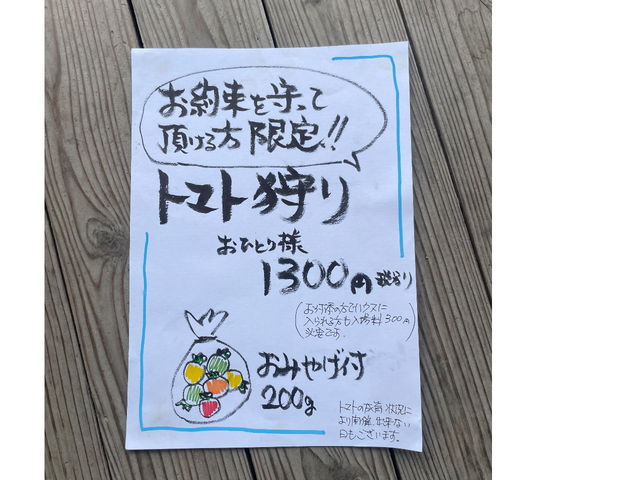 お約束を守って
頂ける方限定!!
トマト狩り
おひとり様
1300円 税込り
(お付添の方でハウスに
入られる方も入場料300円
必要です。)
おみやげ付
200g
トマトの成育状況に
より開催出来ない
日もございます。